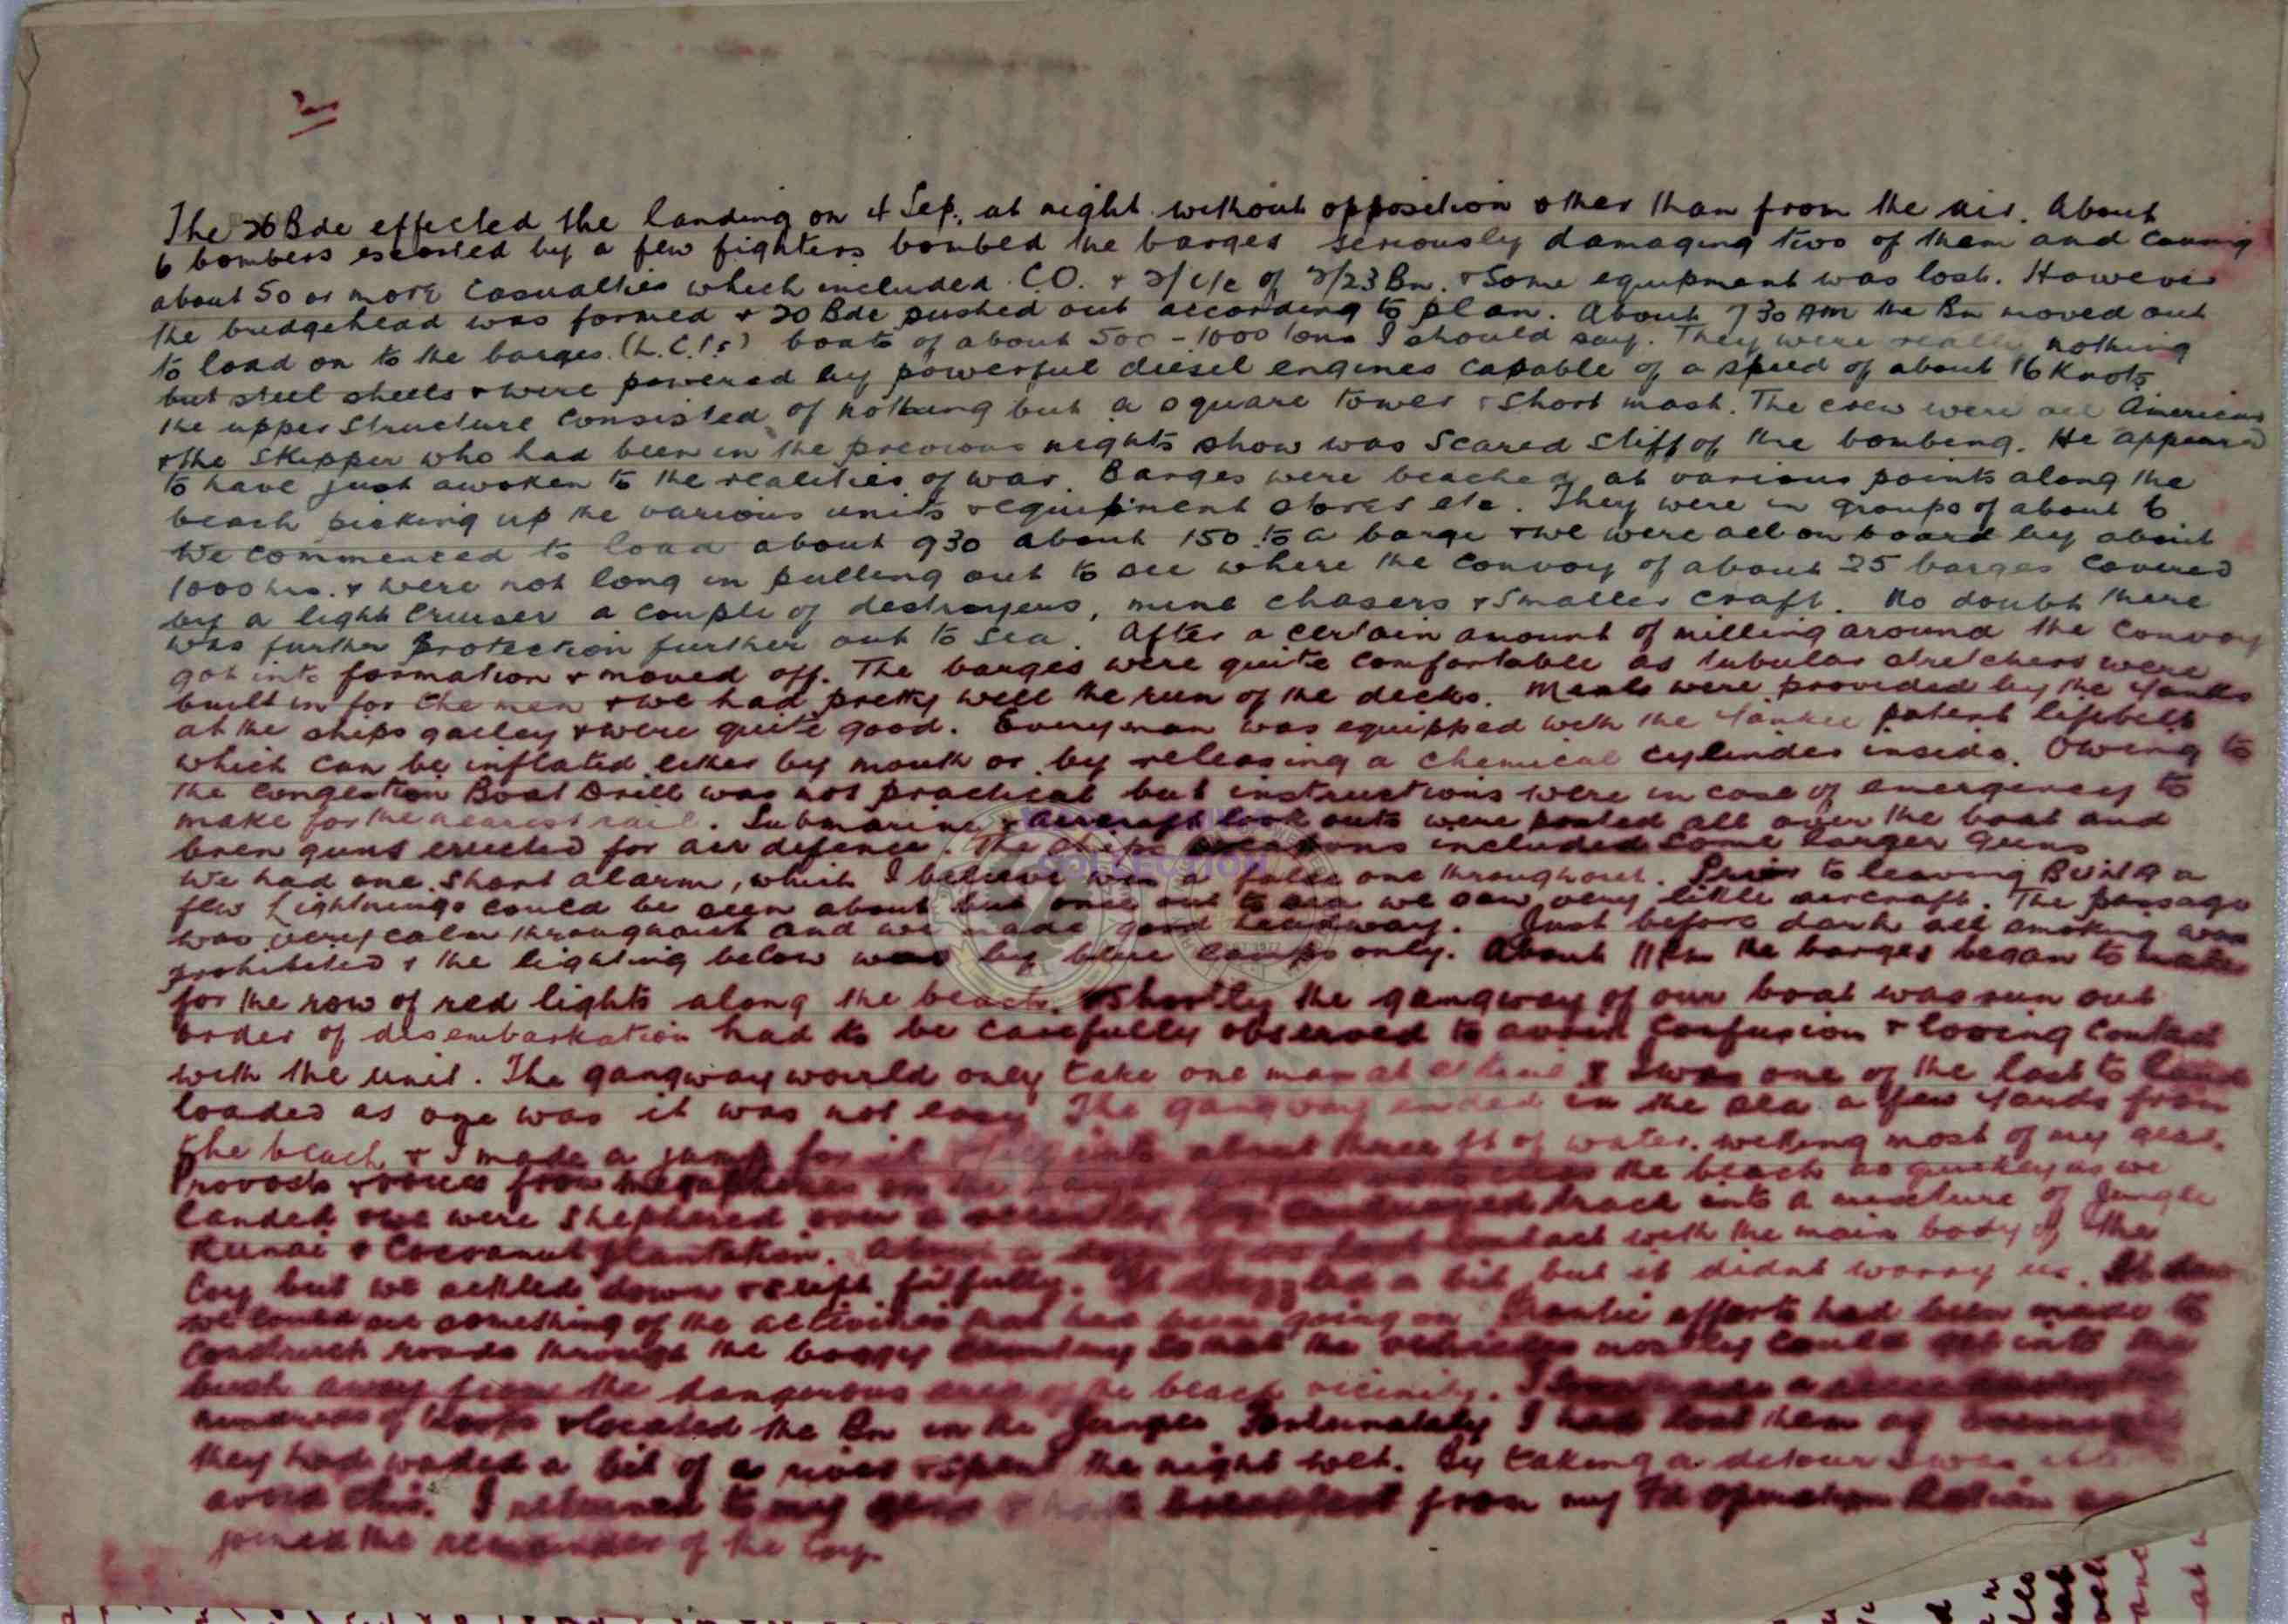 2
The 26 Bde effected the landing on 4 Sep. at night without opposition other than from the air. About
6 bombers escorted by a few fighters bombed the barges seriously damaging two of them and causing
about 50 or more casualties which included C.O. + 2/i/c of 2/23 Bn. + Some equipment was lost. However
the bridgehead was formed + 20 Bde pushed out according to plan. About 730 AM the Bn moved out
to load on to the barges. (L.C.I's) boats of about 500 - 1000 tons I should say. They were really nothing
but steel shells + were powered by powerful diesel engines capable of a speed of about 16 Knots
the upper Structure consisted of nothing but a square tower + short mast. The crew were all Americans
+ the Skipper who had been in the previous nights show was scared stiff of the bombing. He appeared
to have just awoken to the realities of war. Barges were beached at various points along the
beach picking up the various units + equipment stores etc. They were in groups of about 6
We commenced to load about 930 about 150 to a barge + we were all on board by about
1000 hrs. + were not long in pulling out to see where the convoy of about 25 barges covered
by a light Cruiser a couple of destroyers, mine chasers + smaller craft. No doubt there
was further protection further out to sea. After a certain amount of milling around the convoy
got into formation + moved off. The barges were quite comfortable as tubular stretchers were
built in for the men + we had pretty well the run of the decks. Meals were provided by the Yanks
at the ships galley + were quite good. Every man was equipped with the Yankee patent lifebelt
which can be inflated either by mouth or by releasing a chemical cylinder inside. Owing to
the congestion Boat Drill was not practical but instructions were in case of emergency to
make for the nearest rail. Submarine + aircraft look outs were posted all over the boat and
bren guns erected for air defence. The ships included some larger guns
We had one short alarm, which I believe was a false one throughout. Prior to leaving BUNA a
few Lightnings could be seen about but once out to sea we saw very little aircraft. The passage
was very calm throughout and we made good headway. Just before dark all smoking was
prohibited + the lighting below was by blue lamps only. About 11 Pm the barges began to make
for the row of red lights along the beach. + Shortly the gangway of our boat was run out
order of disembarkation had to be carefully observed to avoid confusion + losing contact
with the unit. The gangway would only take one man at a time + I was one of the last to land
loaded as one was it was not easy The gangway ended in the sea a few yards from
the beach + I made a jump for it + fell into about three ft of water. wetting most of my gear.
Provosts + voices from megaphones on the the beach as quickly as we
landed + we were shephered over a track into a mixture of Jungle
Kunai + Cocoanut plantation. lost contact with the main body of the
Coy but we settled down + slept fitfully. It drizzled a bit but it didnt worry us. At dawn
we could see something of the activities that had been going on Frantic efforts had been made to
construct roads through the boggy country so that the vehicles mostly could get into the
bush away from the dangerous area of the beach vicinity. I
hundreds of troops + located the Bn in the Jungle Fortunately I had lost them as
they had waded a bit of a river + spent the night wet. By taking a detour I was
avoid this. I returned to my gear + had breakfast from my Fd operation Ration
joined the remainder of the Coy.